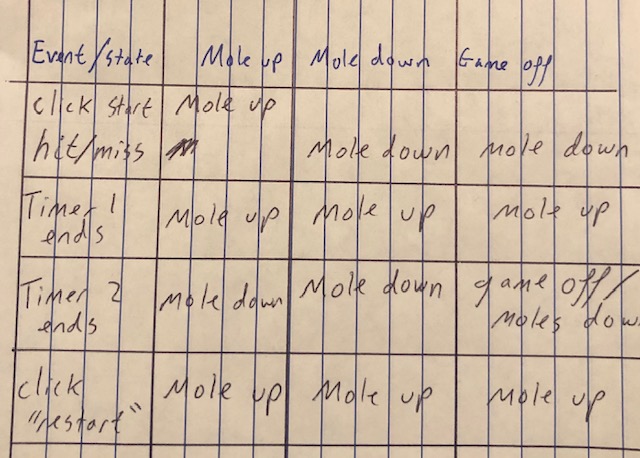 Event/state Mole up Mole down Game off
click start Mole up
hit/miss Mole down Mole down
Timer 1 Mole up Mole up Mole up
ends
Timer 2 Mole down Mole down game off/
ends moles dow
click Mole up Mole up Mole up
"restart"